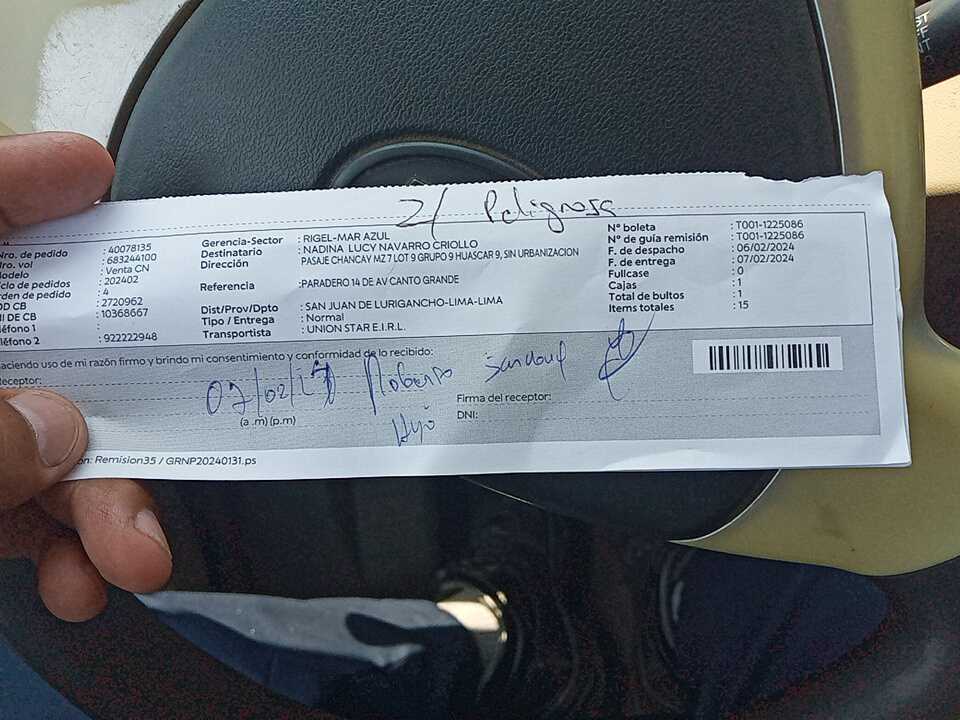 2/ Peligrosa
Nro. de pedido : 40078135
Nro. vol : 683244100
Modelo : Venta CN
Ciclo de pedidos : 202402
Orden de pedido : 4
OD CB : 2720962
NI DE CB : 10368667
eléfono 1 :
eléfono 2 : 922222948
Gerencia-Sector : RIGEL-MAR AZUL
Destinatario : NADINA LUCY NAVARRO CRIOLLO
Dirección : PASAJE CHANCAY MZ 7 LOT 9 GRUPO 9 HUASCAR 9, SIN URBANIZACION
Referencia : PARADERO 14 DE AV CANTO GRANDE
Dist/Prov/Dpto : SAN JUAN DE LURIGANCHO-LIMA-LIMA
Tipo / Entrega : Normal
Transportista : UNION STAR E.I.R.L.
N° boleta : T001-1225086
N° de guía remisión : T001-1225086
F. de despacho : 06/02/2024
F. de entrega : 07/02/2024
Fullcase : 0
Cajas : 1
Total de bultos : 1
Items totales : 15
aciendo uso de mi razón firmo y brindo mi consentimiento y conformidad de lo recibido:
Receptor:
07/02/ Roberto
(a .m) (p.m)
Hijo
Firma del receptor:
DNI:
ón: Remision35 / GRNP20240131.ps